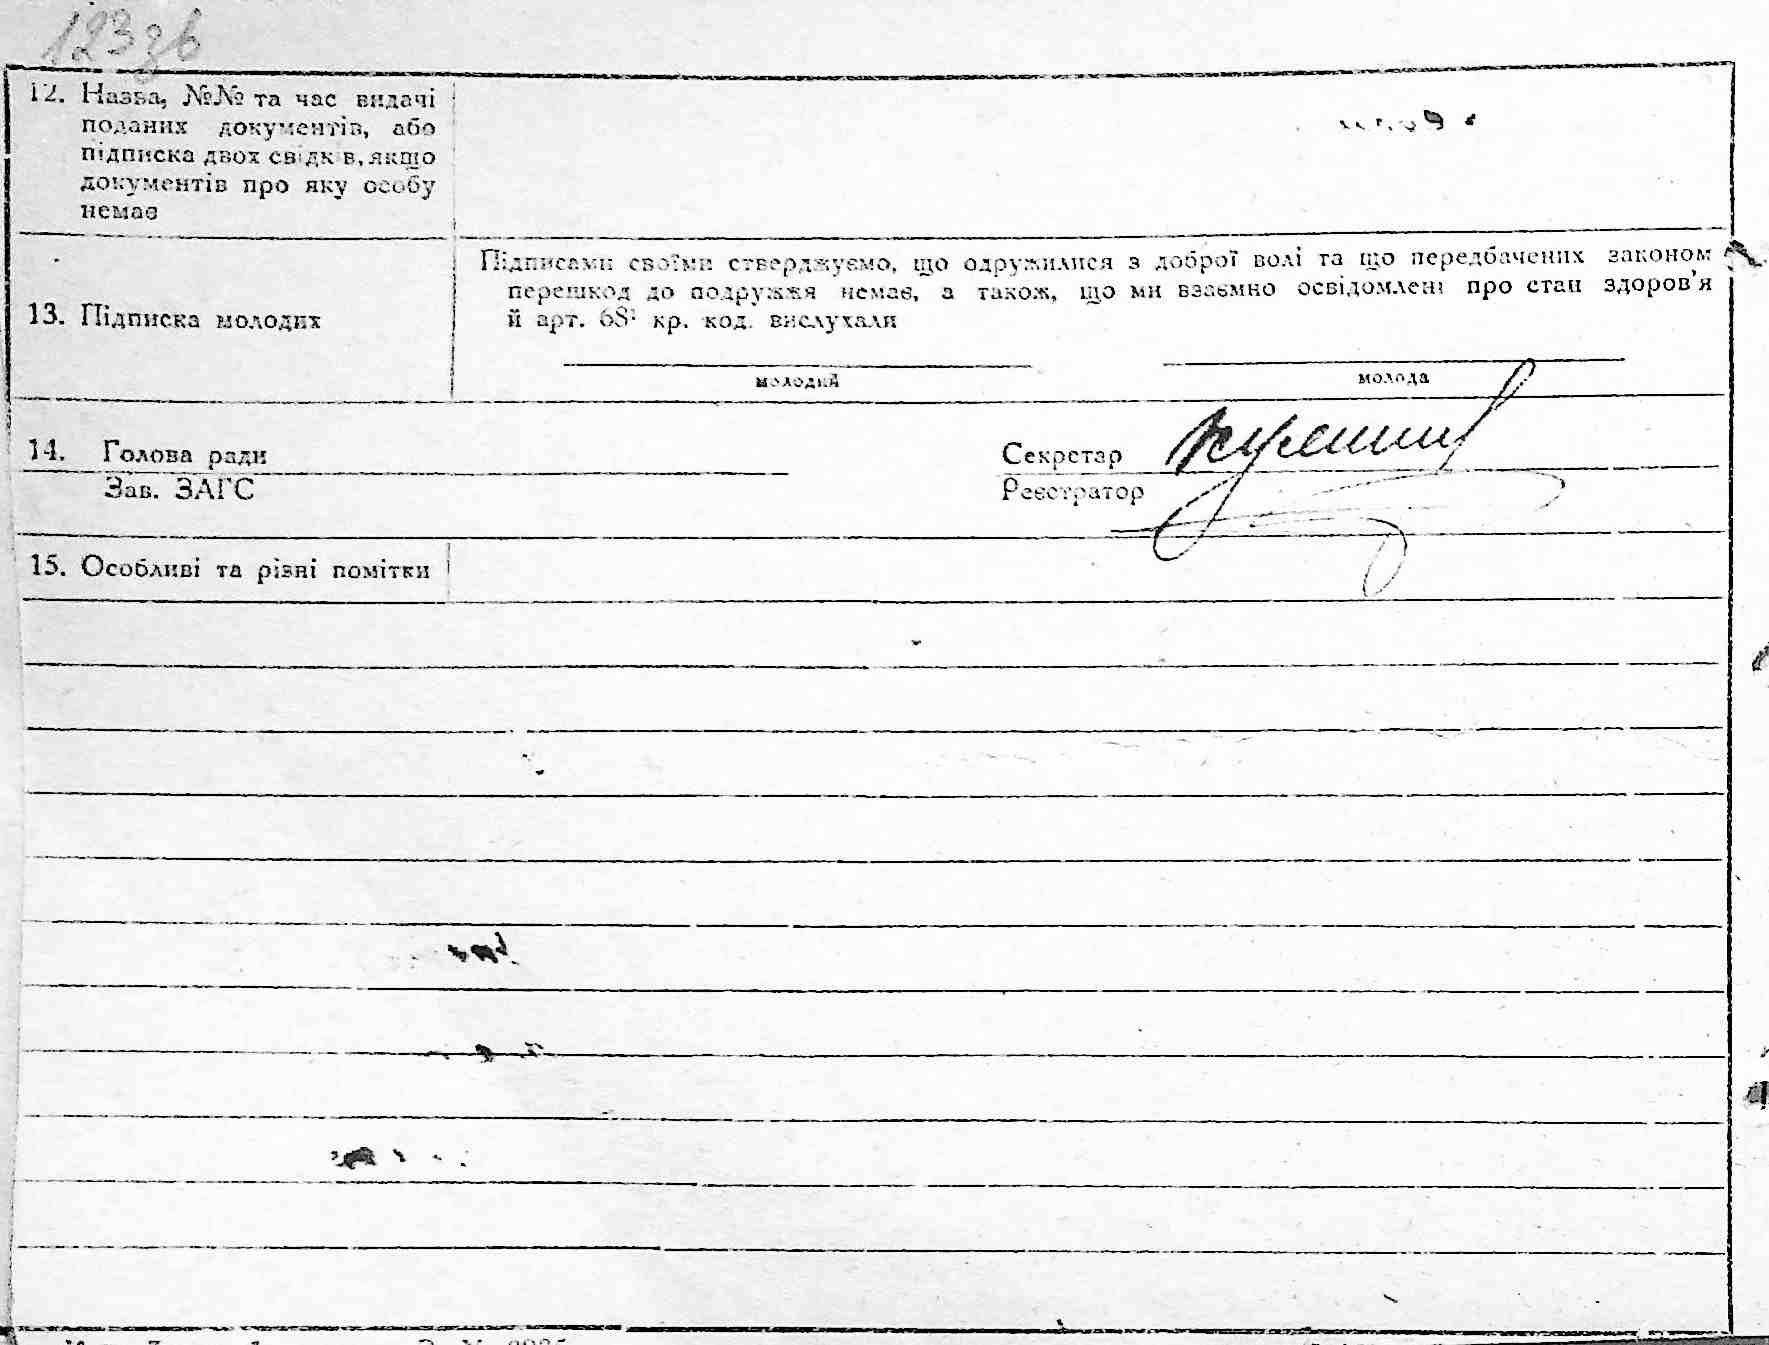 123зв
12. Назва, №№ та час видачі
поданих документів, або
підписка двох свідків, якщо
документів про яку особу
немає
13. Підписка молодих
Підписами своїми стверджуємо, що одружилися з доброї волі та що передбачених законом
перешкод до подружжя немає, а також, що ми взаємно освідомлені про стан здоров'я
й арт. 68¹ кр. код. вислухали
молодий
молода
14. Голова ради
Зав. ЗАГС
Секретар
Реєстратор
15. Особливі та різні помітки